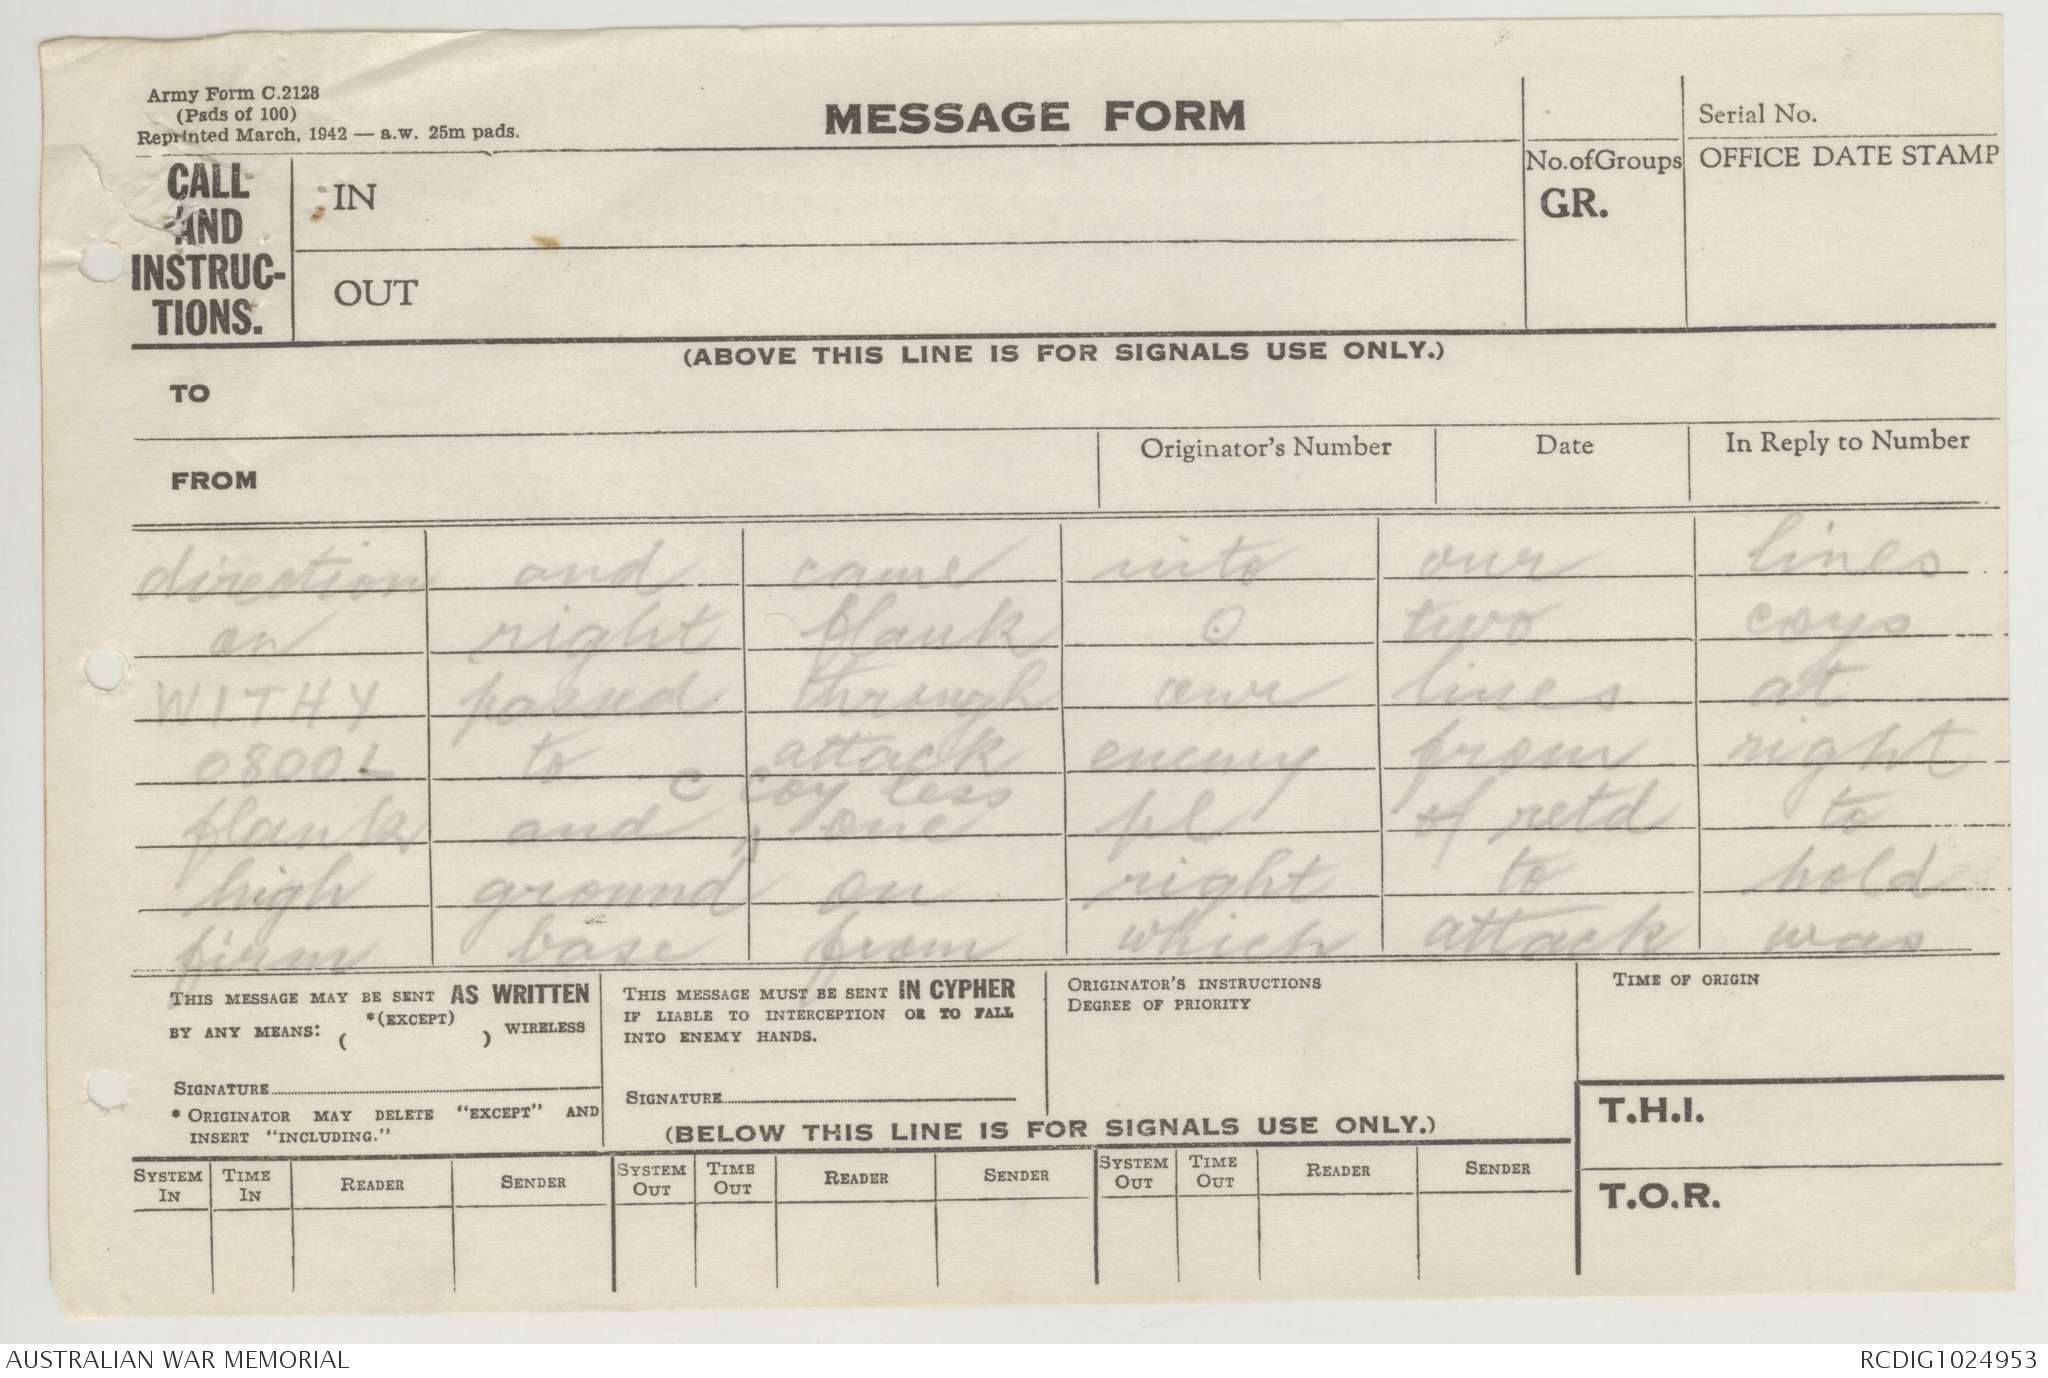 Army Form C.2128
(Pads of 100)
Reprinted March, 1942 — a.w. 25m pads.
MESSAGE FORM
Serial No.
CALL
AND
INSTRUC-
TIONS.
IN
OUT
No.ofGroups
GR.
OFFICE DATE STAMP
(ABOVE THIS LINE IS FOR SIGNALS USE ONLY.)
TO
FROM
Originator's Number
Date
In Reply to Number
direction and came into our lines
on right flank O two coys
WITHY passed through our lines at
0800L to attack enemy from right
C coy less
flank and one pl of retd to
high ground on right to hold
firm base from which attack was
THIS MESSAGE MAY BE SENT AS WRITTEN
BY ANY MEANS: ( *(EXCEPT) ) WIRELESS
SIGNATURE
* ORIGINATOR MAY DELETE "EXCEPT" AND
INSERT "INCLUDING."
THIS MESSAGE MUST BE SENT IN CYPHER
IF LIABLE TO INTERCEPTION OR TO FALL
INTO ENEMY HANDS.
SIGNATURE
ORIGINATOR'S INSTRUCTIONS
DEGREE OF PRIORITY
TIME OF ORIGIN
(BELOW THIS LINE IS FOR SIGNALS USE ONLY.)
T.H.I.
T.O.R.
SYSTEM IN TIME IN READER SENDER SYSTEM OUT TIME OUT READER SENDER SYSTEM OUT TIME OUT READER SENDER
AUSTRALIAN WAR MEMORIAL
RCDIG1024953